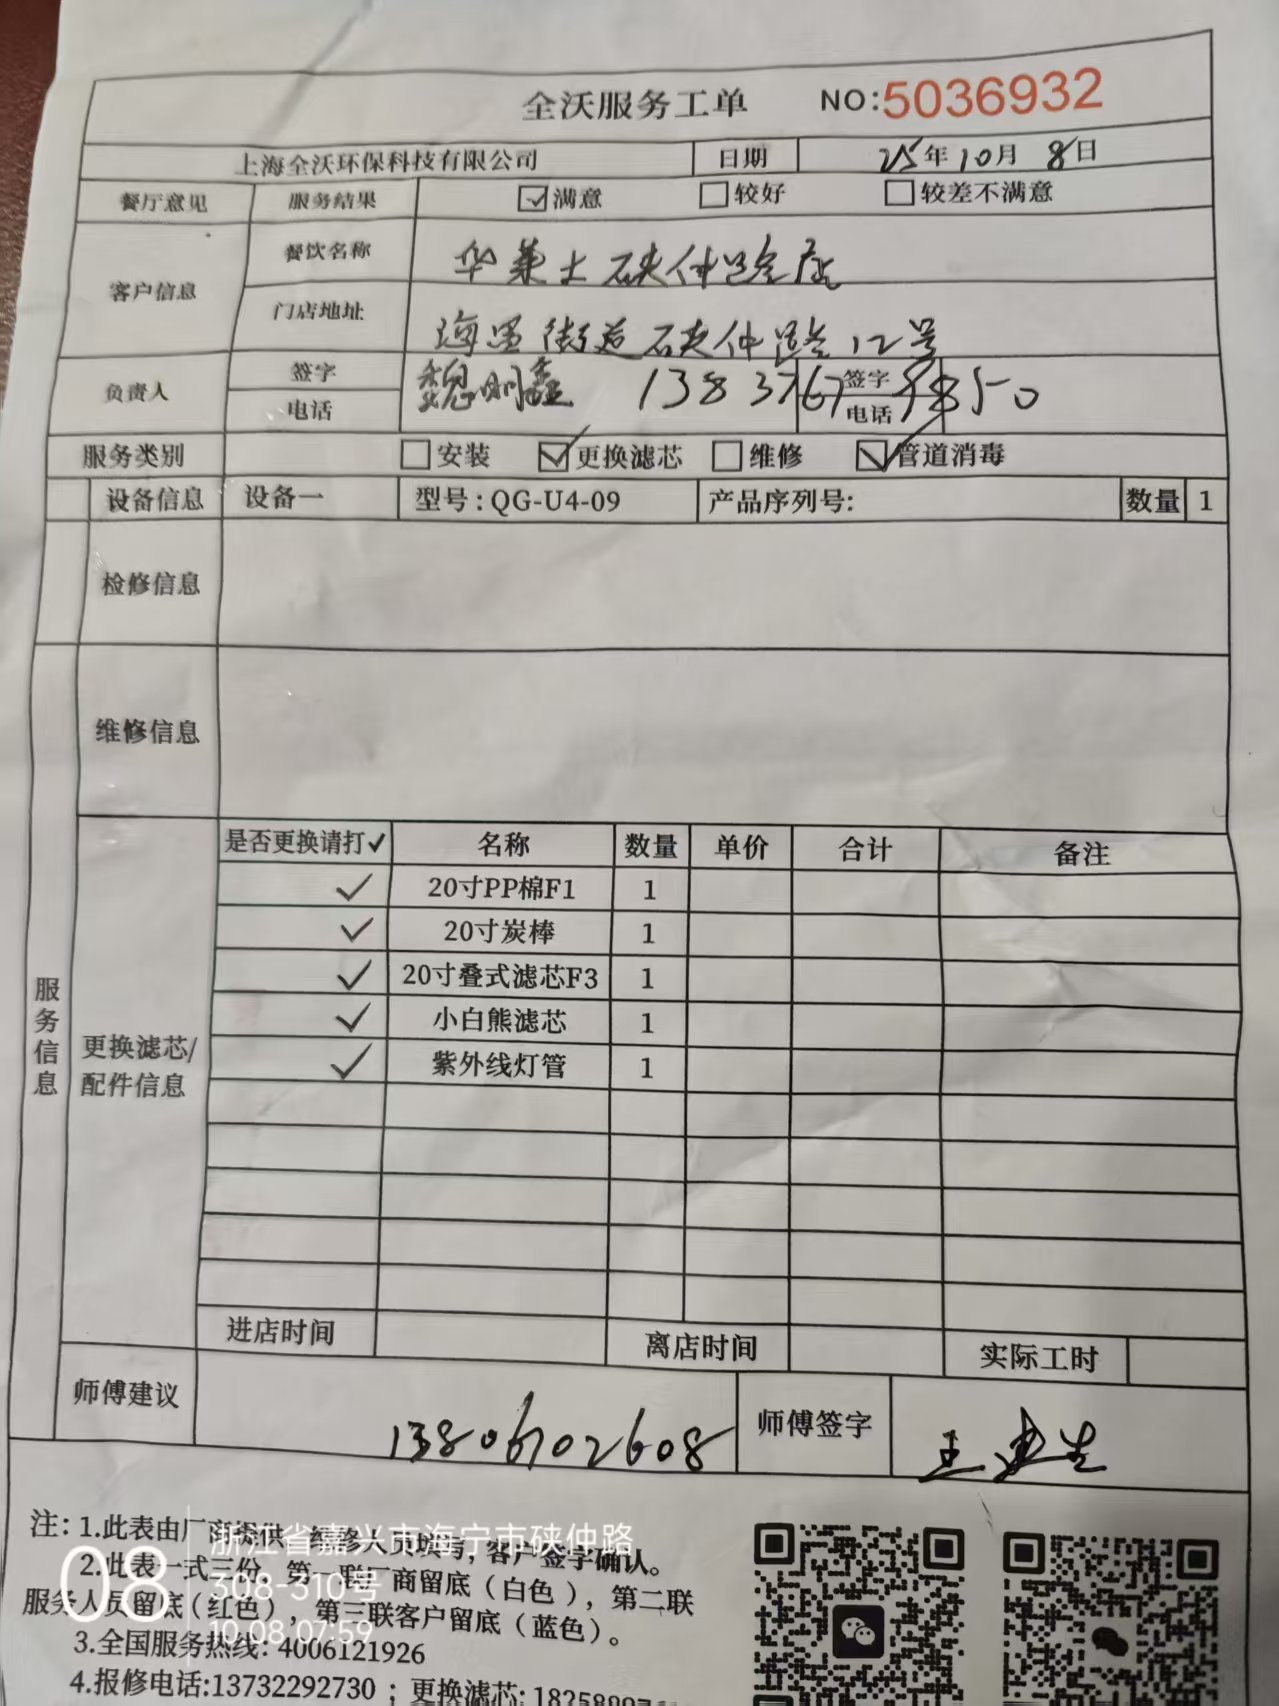 全沃服务工单 NO:5036932
上海全沃环保科技有限公司 日期 25年10月8日
餐厅意见 服务结果 ☑满意 □较好 □较差不满意
客户信息 餐饮名称 华莱士硖仲路店
门店地址 海昌街道硖仲路12号
负责人 签字 魏明鑫 签字
电话 电话
服务类别 □安装 ☑更换滤芯 □维修 ☑管道消毒
设备信息 设备一 型号:QG-U4-09 产品序列号: 数量 1
检修信息
维修信息
服务信息
更换滤芯/
配件信息
是否更换请打✓ 名称 数量 单价 合计 备注
✓ 20寸PP棉F1 1
✓ 20寸炭棒 1
✓ 20寸叠式滤芯F3 1
✓ 小白熊滤芯 1
✓ 紫外线灯管 1
进店时间 离店时间 实际工时
师傅建议 13806702608 师傅签字
注:1.此表由厂商提供,维修人员填写,客户签字确认。
2.此表一式三份,第一联厂商留底(白色),第二联
服务人员留底(红色),第三联客户留底(蓝色)。
3.全国服务热线:4006121926
4.报修电话:13732292730;更换滤芯:
08
浙江省嘉兴市海宁市硖仲路
308-310号
10.08.07:59